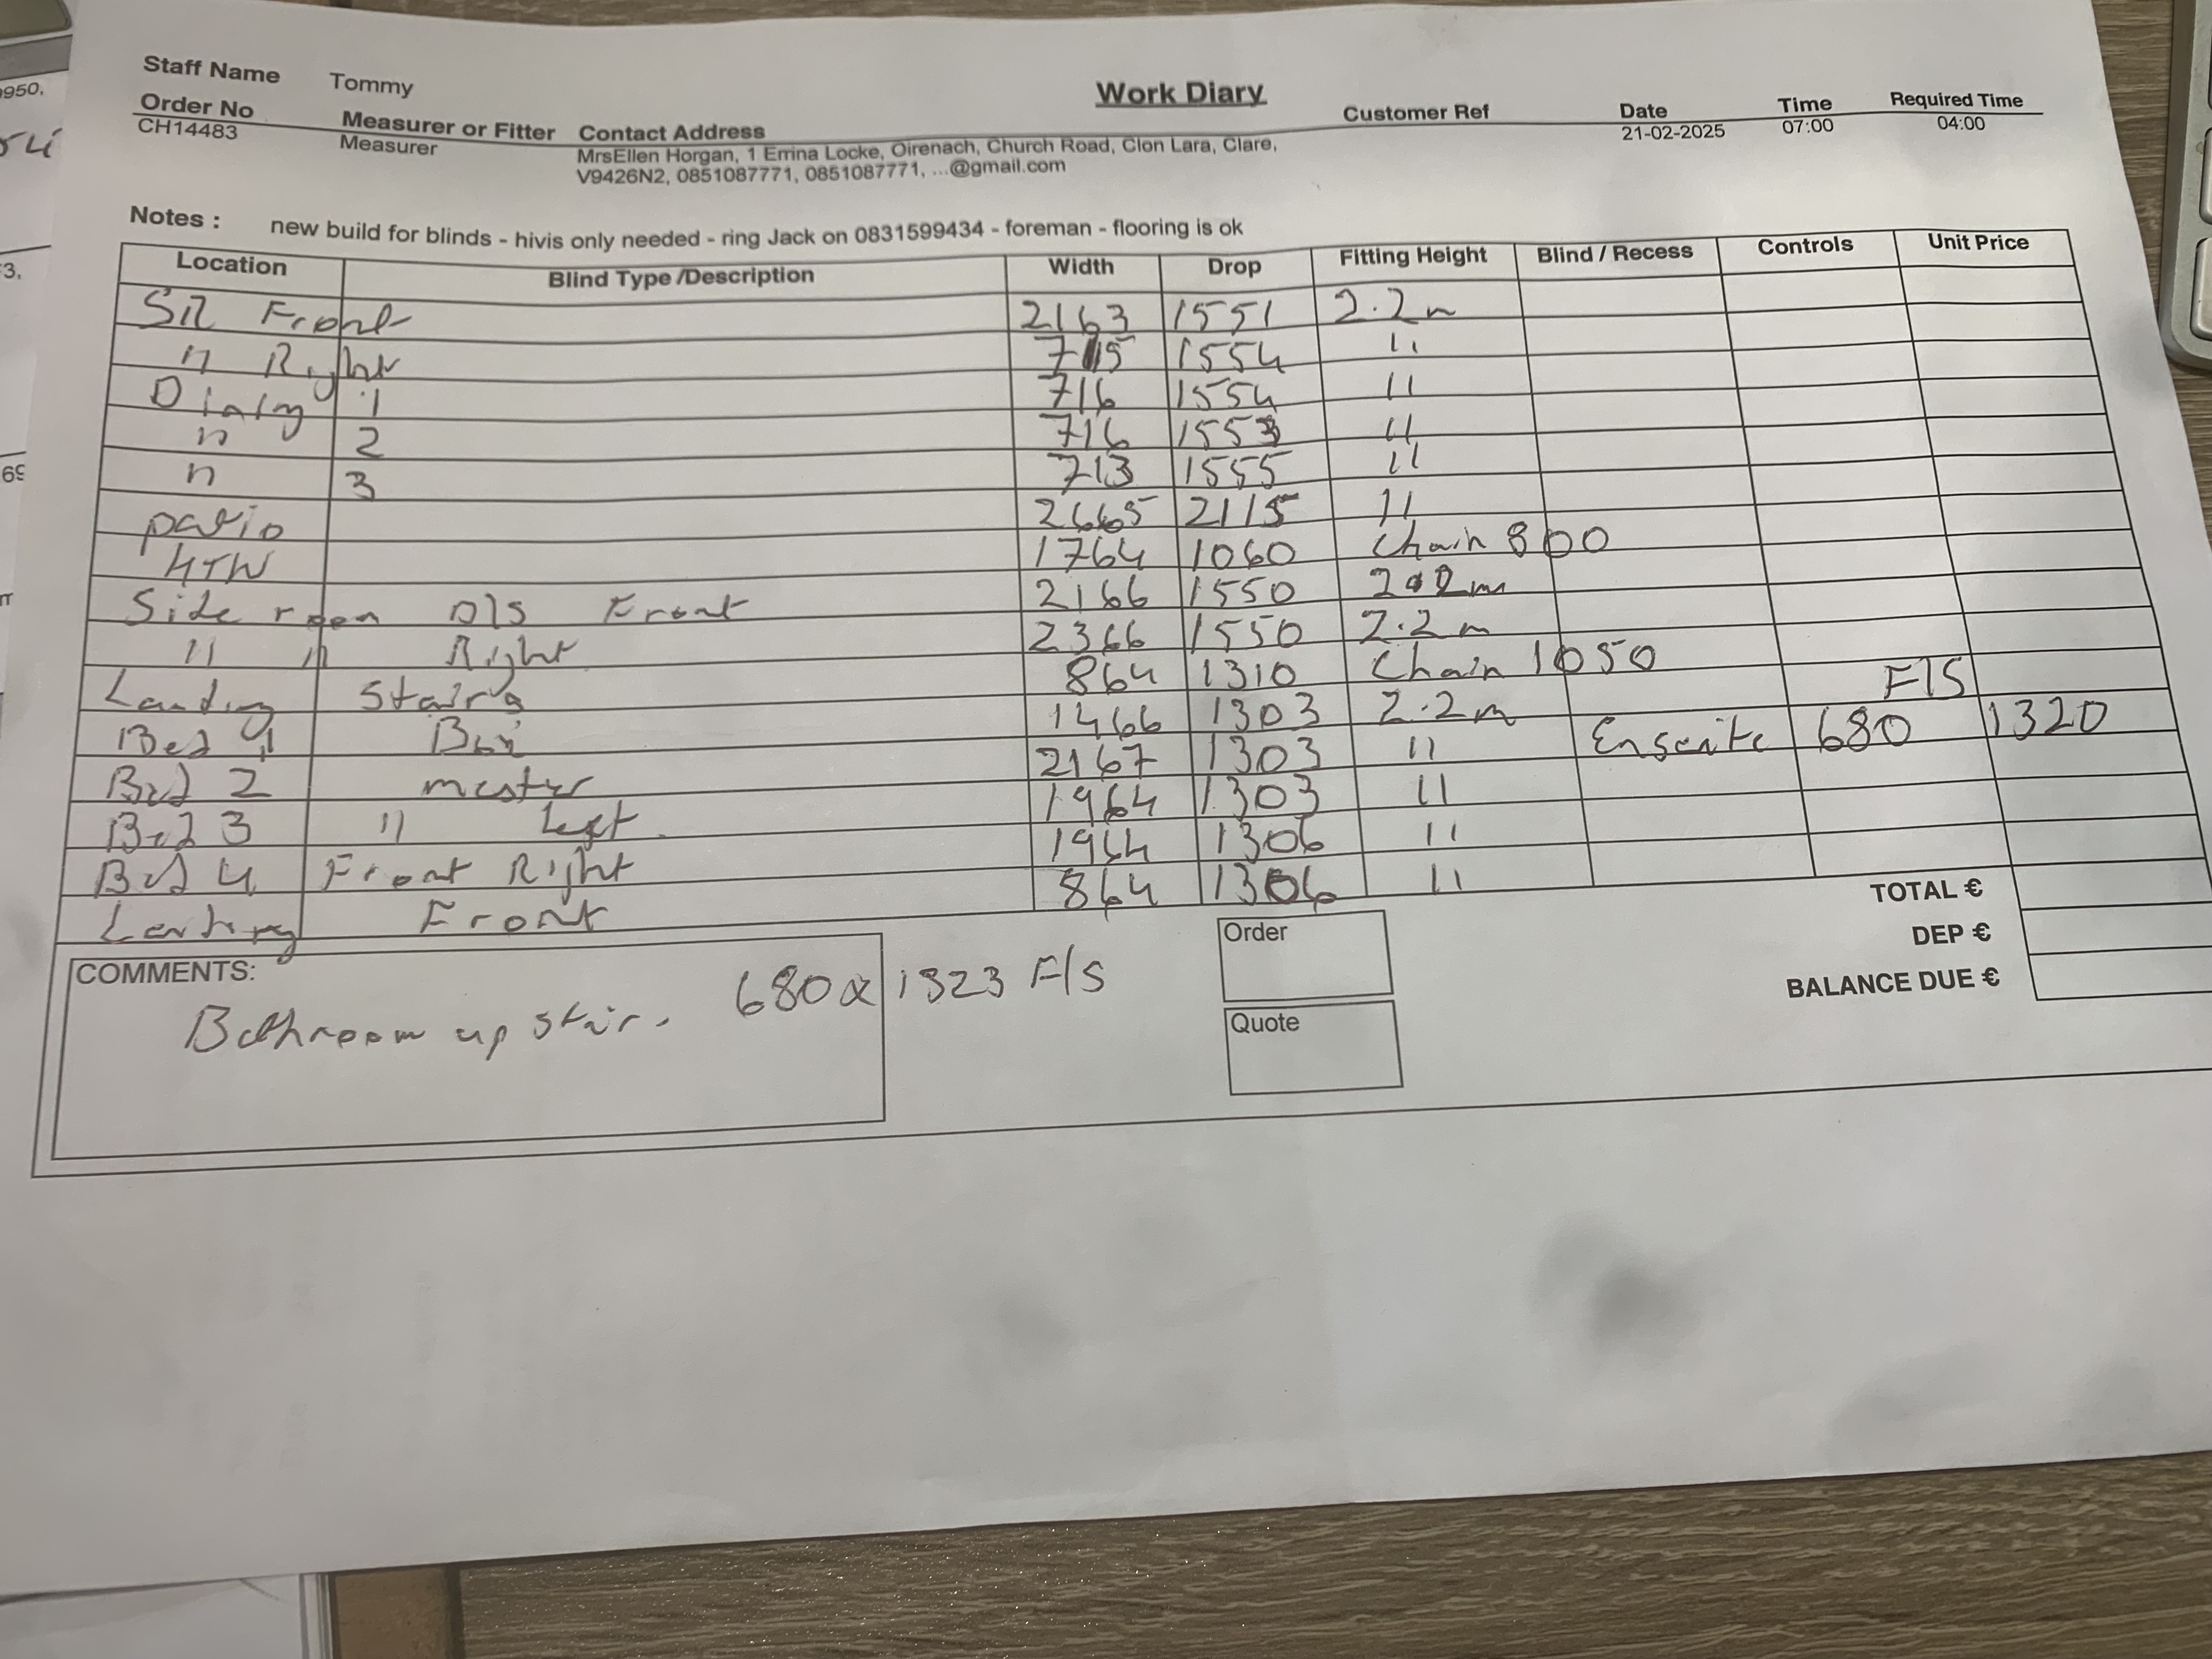 950,
Staff Name Tommy
Work Diary
Order No Measurer or Fitter Contact Address Customer Ref Date Time Required Time
CH14483 Measurer MrsEllen Horgan, 1 Errina Locke, Oirenach, Church Road, Clon Lara, Clare, 21-02-2025 07:00 04:00
V9426N2, 0851087771, 0851087771, ...@gmail.com
Notes : new build for blinds - hivis only needed - ring Jack on 0831599434 - foreman - flooring is ok
Location Blind Type /Description Width Drop Fitting Height Blind / Recess Controls Unit Price
Sit Front 2163 1551 2.2m
" Right 715 1554 "
Dining 1 716 1554 "
" 2 716 1553 "
" 3 713 1555 "
patio 2665 2115 "
KTW 1764 1060 Chain 800
Side room D/S Front 2166 1550 2.2m
" " Right 2366 1550 2.2m
Landing Stairs 864 1310 Chain 1050
Bed 1 Box 1466 1303 2.2m F/S
Bed 2 master 2167 1303 " Ensuite 680 1320
Bed 3 " Left 1964 1303 "
Bed 4 Front Right 1964 1306 "
Landing Front 864 1306 "
TOTAL €
DEP €
BALANCE DUE €
COMMENTS:
Bathroom up stair. 680 x 1323 F/S
Order
Quote